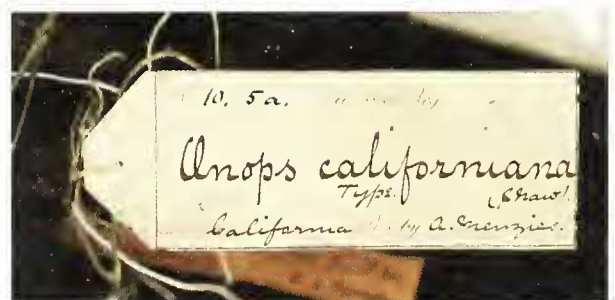 10. 5a. by
Anops californiana
Type. (Shaw).
California by A. Menzies.